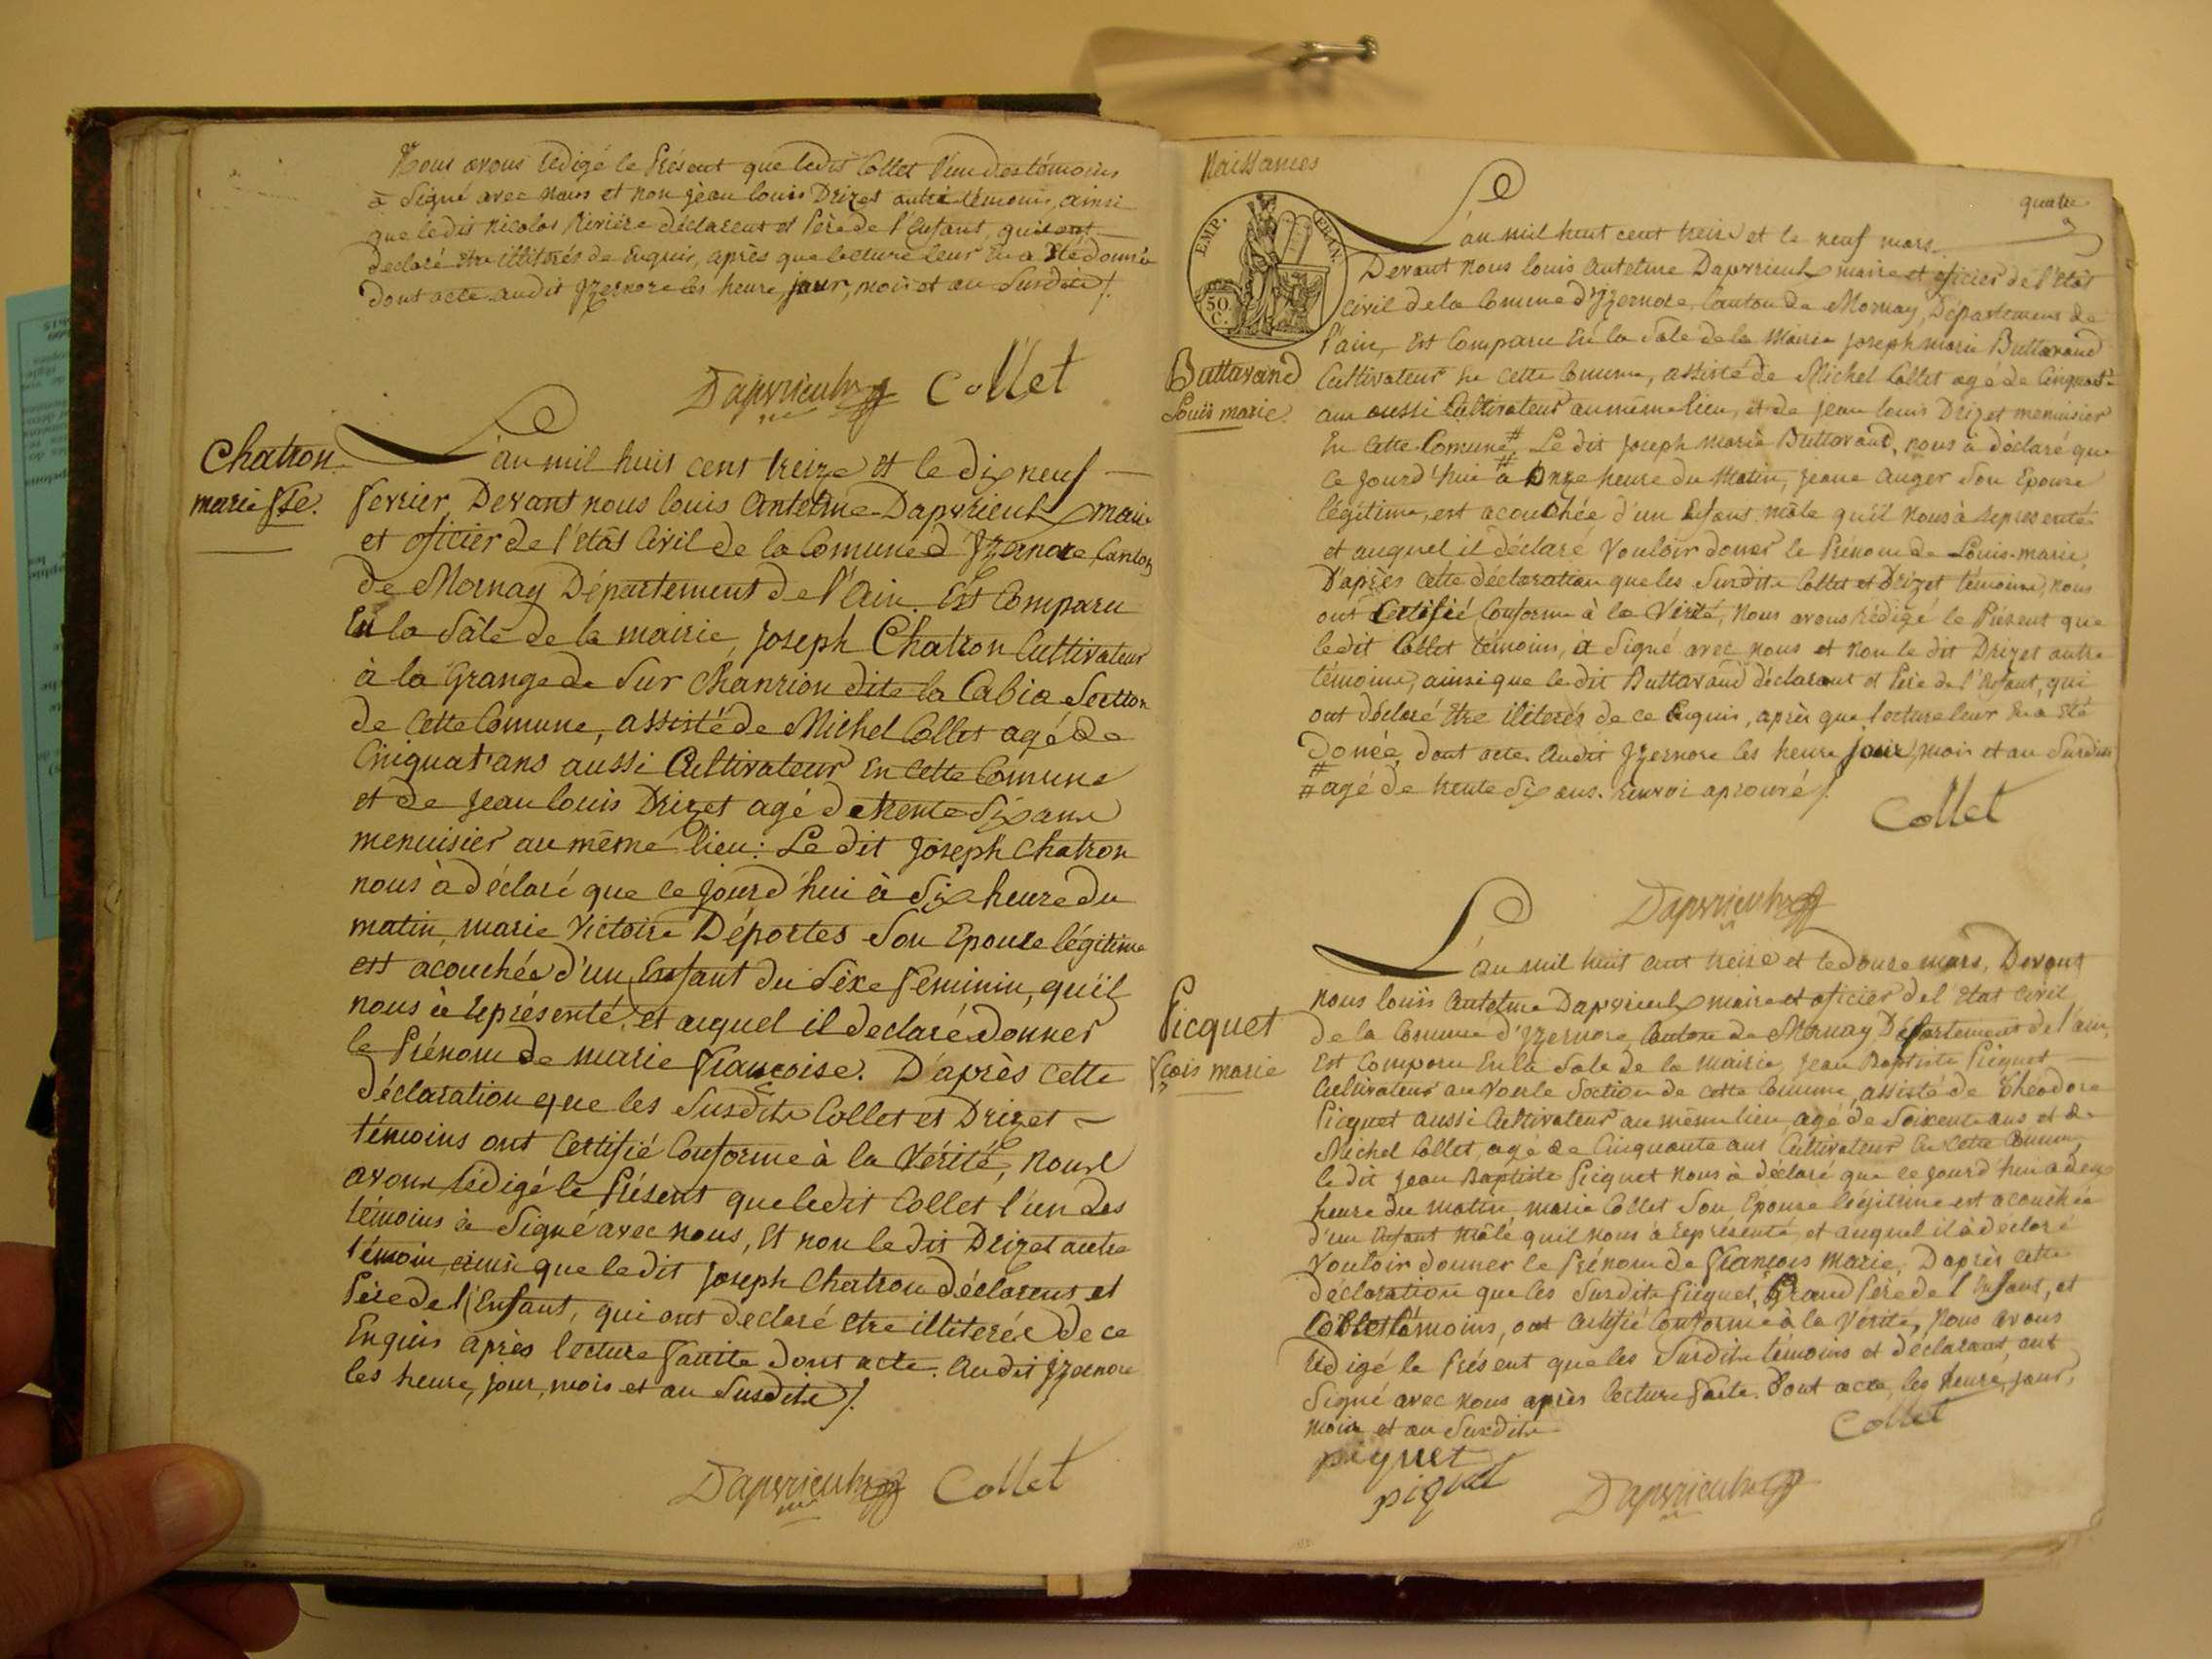 Nous avons rédigé le Présent que ledit Collet l'un des témoins
à Signé avec nous et non jean louis Drizet autre témoin, ainsi
que ledit Nicolas Riviere déclarent et Père de l'Enfant, qui ont
declaré être illiterés de Enquis, après que lecture leur En a Eté donnée
dont acte audit Yzernore les heure, jour, mois et an Susdits /.
Collet
Chatron
marie fse.
L'an mil huit cent treize et le dix neuf
fevrier, Devant nous louis Antelme Dapvrieulx maire
et oficier de l'êtat Civil de la Comune d'Yzernore, Canton
de Mornay Département de l'Ain. Est Comparu
En la Sale de la mairie, joseph Chatron Cultivateur
à la Grange de Sur Chanrion dite la Cabia Section
de Cette Comune, assisté de Michel Collet agé de
Cinquat'ans aussi Cultivateur En Cette Comune
et de jean louis Drizet agé de trente Six ans
menuisier au même lieu: Le dit joseph Chatron
nous à déclaré que ce jourd'hui à Six heure du
matin, marie Victoire Déportes Son Epouse légitime
est acouchée d'un Enfant du Séxe feminin, qu'il
nous à représenté, et auquel il declaré donner
le Prénom de marie françoise. D'après cette
déclaration que les Susdits Collet et Drizet
témoins ont Certifié Conforme à la Vérité, nous
avons rédigé le Présent que ledit Collet l'un des
témoins à Signé avec nous, Et non le dit Drizet autre
témoin, ainsi que le dit joseph Chatron déclarent et
Père de l'Enfant, qui ont declaré etre illiterés de ce
Enquis après lecture faitte dont acte. Audit Yzernore
les heure, jour, mois et an Susdits /.
Dapvrieulx Collet
Naissances
quatre
EMP. FRAN.
50 C.
Buttavand
Louis marie.
L'an mil huit cent treize et le neuf mars
Devant nous louis Antelme Dapvrieulx maire et oficier de l'êtat
civil de la Comune d'Yzernore, Canton de Mornay, Département de
l'ain, Est Comparu En la Sale de la Mairie joseph marie Buttavand
Cultivateur En cette Comune, assisté de Michel Collet agé de Cinquat'e
ans aussi Cultivateur au même lieu, et de jean louis Drizet menuisier
En Cette Comune # Le dit joseph marie Buttavand, nous à déclaré que
ce jourd'hui à Onze heure du Matin, jeane Auger Son Epouse
légitime, est acouchée d'un Enfant mâle qu'il nous à representé
et auquel il déclaré Vouloir doner le Prénom de Louis-marie,
D'après cette déclaration que les Susdits Collet et Drizet témoins, nous
ont Certifié Conforme à la Vérité, Nous avons rédigé le Présent que
ledit Collet témoins, à Signé avec nous et non le dit Drizet autre
témoins, ainsi que le dit Buttavand déclarant et Père de l'Enfant, qui
ont déclaré être iliterés de ce Enquis, après que lecture leur En a Eté
Donée, dont acte. Audit Yzernore les heure jour, mois et an Susdits
# agé de trente Six ans. renvoi aprouvé /.
Collet
Dapvrieulx
Picquet
fçois marie
L'an mil huit cent treize et le douze mars, Devant
nous louis Antelme Dapvrieulx maire et oficier de l'Etat Civil
de la Comune d'Yzernore, Canton de Mornay, Département de l'ain,
Est Comparu En la Sale de la mairie, jean Baptiste Picquet
Cultivateur au Voule Section de cette Comune, assisté de théodore
Picquet aussi Cultivateur au même lieu, agé de Soixente ans et de
Michel Collet, agé de Cinquante ans Cultivateur En Cette Comune,
le dit jean Baptiste Picquet nous à déclaré que ce jourd'hui a deux
heure du matin marie Collet Son Epouse légitime est acouchée
d'un Enfant mâle quil nous à représenté, et auquel il à declaré
Vouloir donner le Prénom de François Marie, D'après cette
déclaration que les Susdits Picquet, Grand Père de l'Enfant, et
Collet témoins, ont certifié Conforme à la Vérité, nous avons
rédigé le Présent que les Susdits témoins et déclarant, ont
Signé avec nous après lecture faite. Dont acte, les heure, jour,
mois et an Susdits
Collet
piquet
piquet
Dapvrieulx